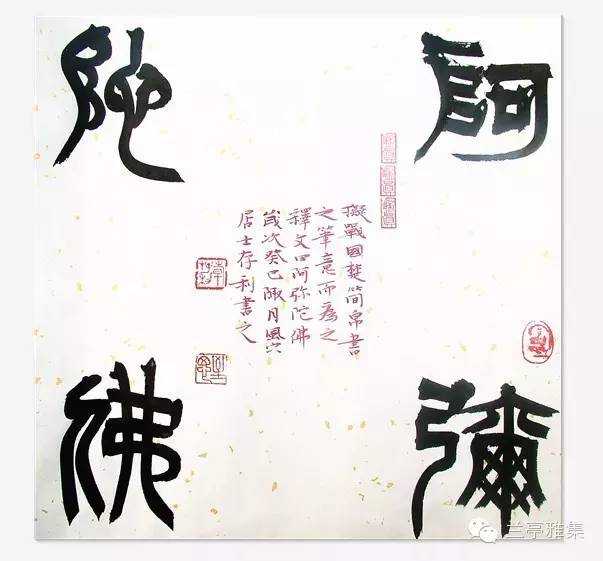 阿彌
陀佛
擬戰國楚簡帛書
之筆意而為之
釋文曰阿弥陀佛
歲次癸巳陬月風穴
居士存利書之
兰亭雅集